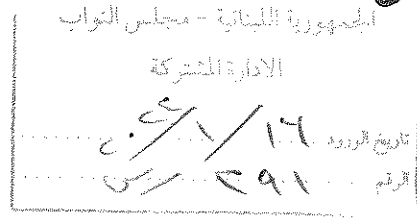 الجمهورية اللبنانية - مجلس النواب
الادارة المشتركة
تاريخ الورود ١٦ / ١ /
الرقم ٢٩١ / س